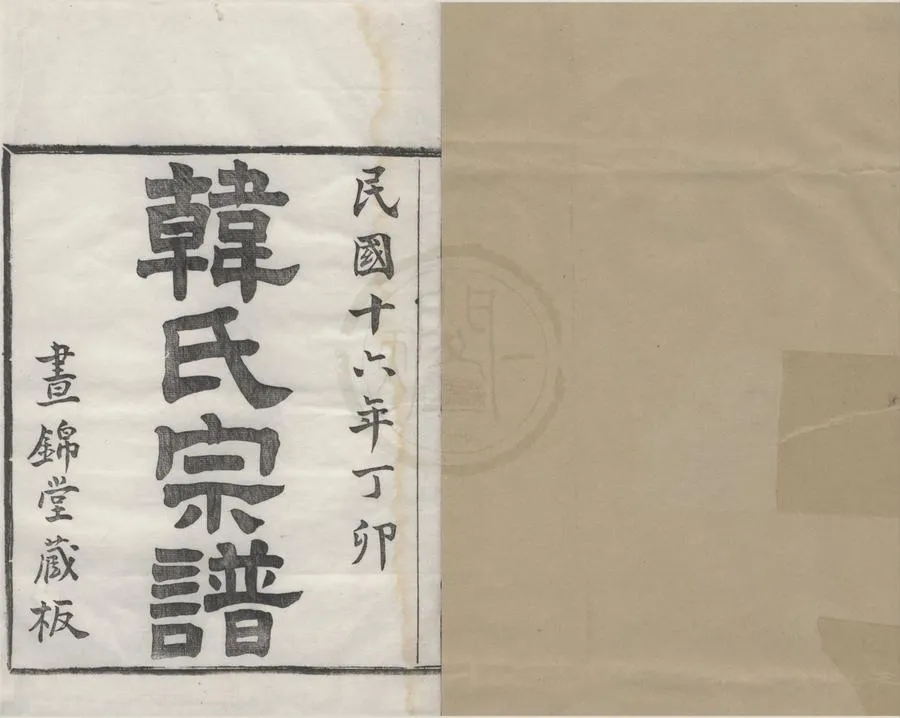 民國十六年丁卯
韓氏宗譜
晝錦堂藏板